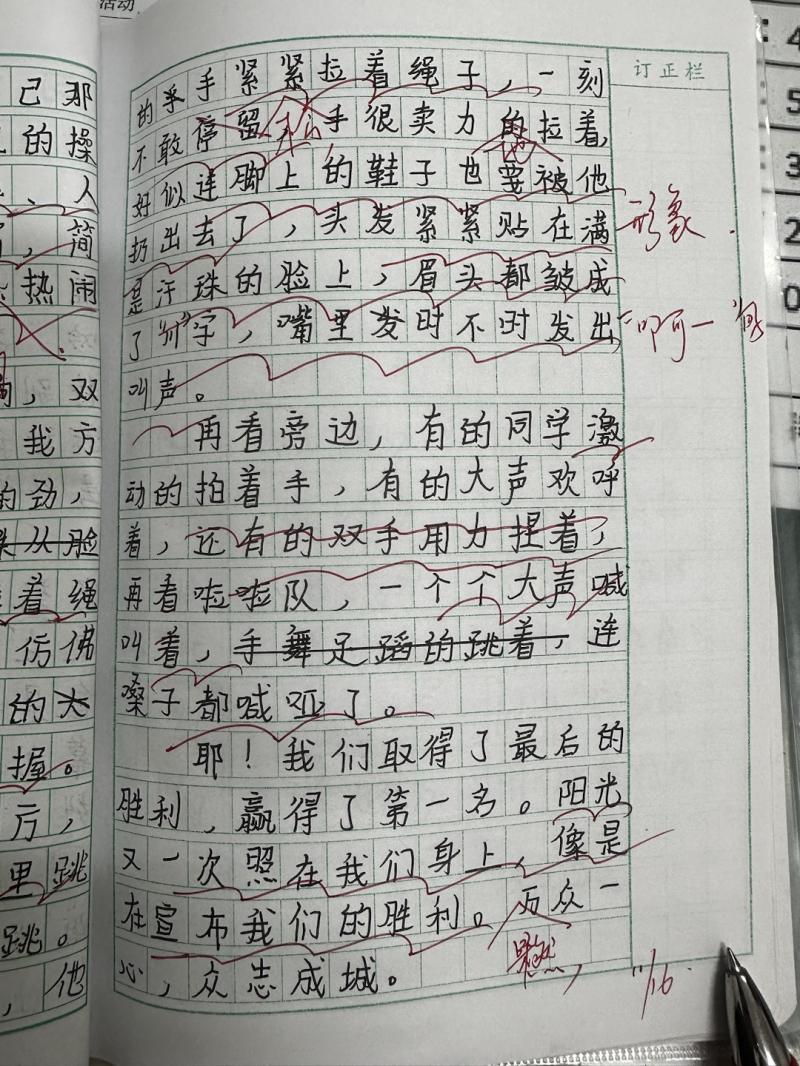 活动
订正栏
的手手紧紧拉着绳子，一刻
不敢停留，手很卖力的拉着，
好似连脚上的鞋子也要被他
扔出去了，头发紧紧贴在满
形象.
是汗珠的脸上，眉头都皱成
了“川”字，嘴里发时不时发出“叮啊一”的
叫声。
再看旁边，有的同学激
动的拍着手，有的大声欢呼
着，还有的双手用力捏着，
再看啦啦队，一个个大声喊
叫着，手舞足蹈的跳着，连
嗓子都喊哑了。
耶！我们取得了最后的
胜利，赢得了第一名。阳光
又一次照在我们身上，像是
在宣布我们的胜利。万众一
心，众志成城。
11/16
已那
的操
、人
，简
热闹
，双
我方
的劲，
从脸
着绳
仿佛
的大
握。
方，
里跳
跳。
，他
4
5
3
2
0